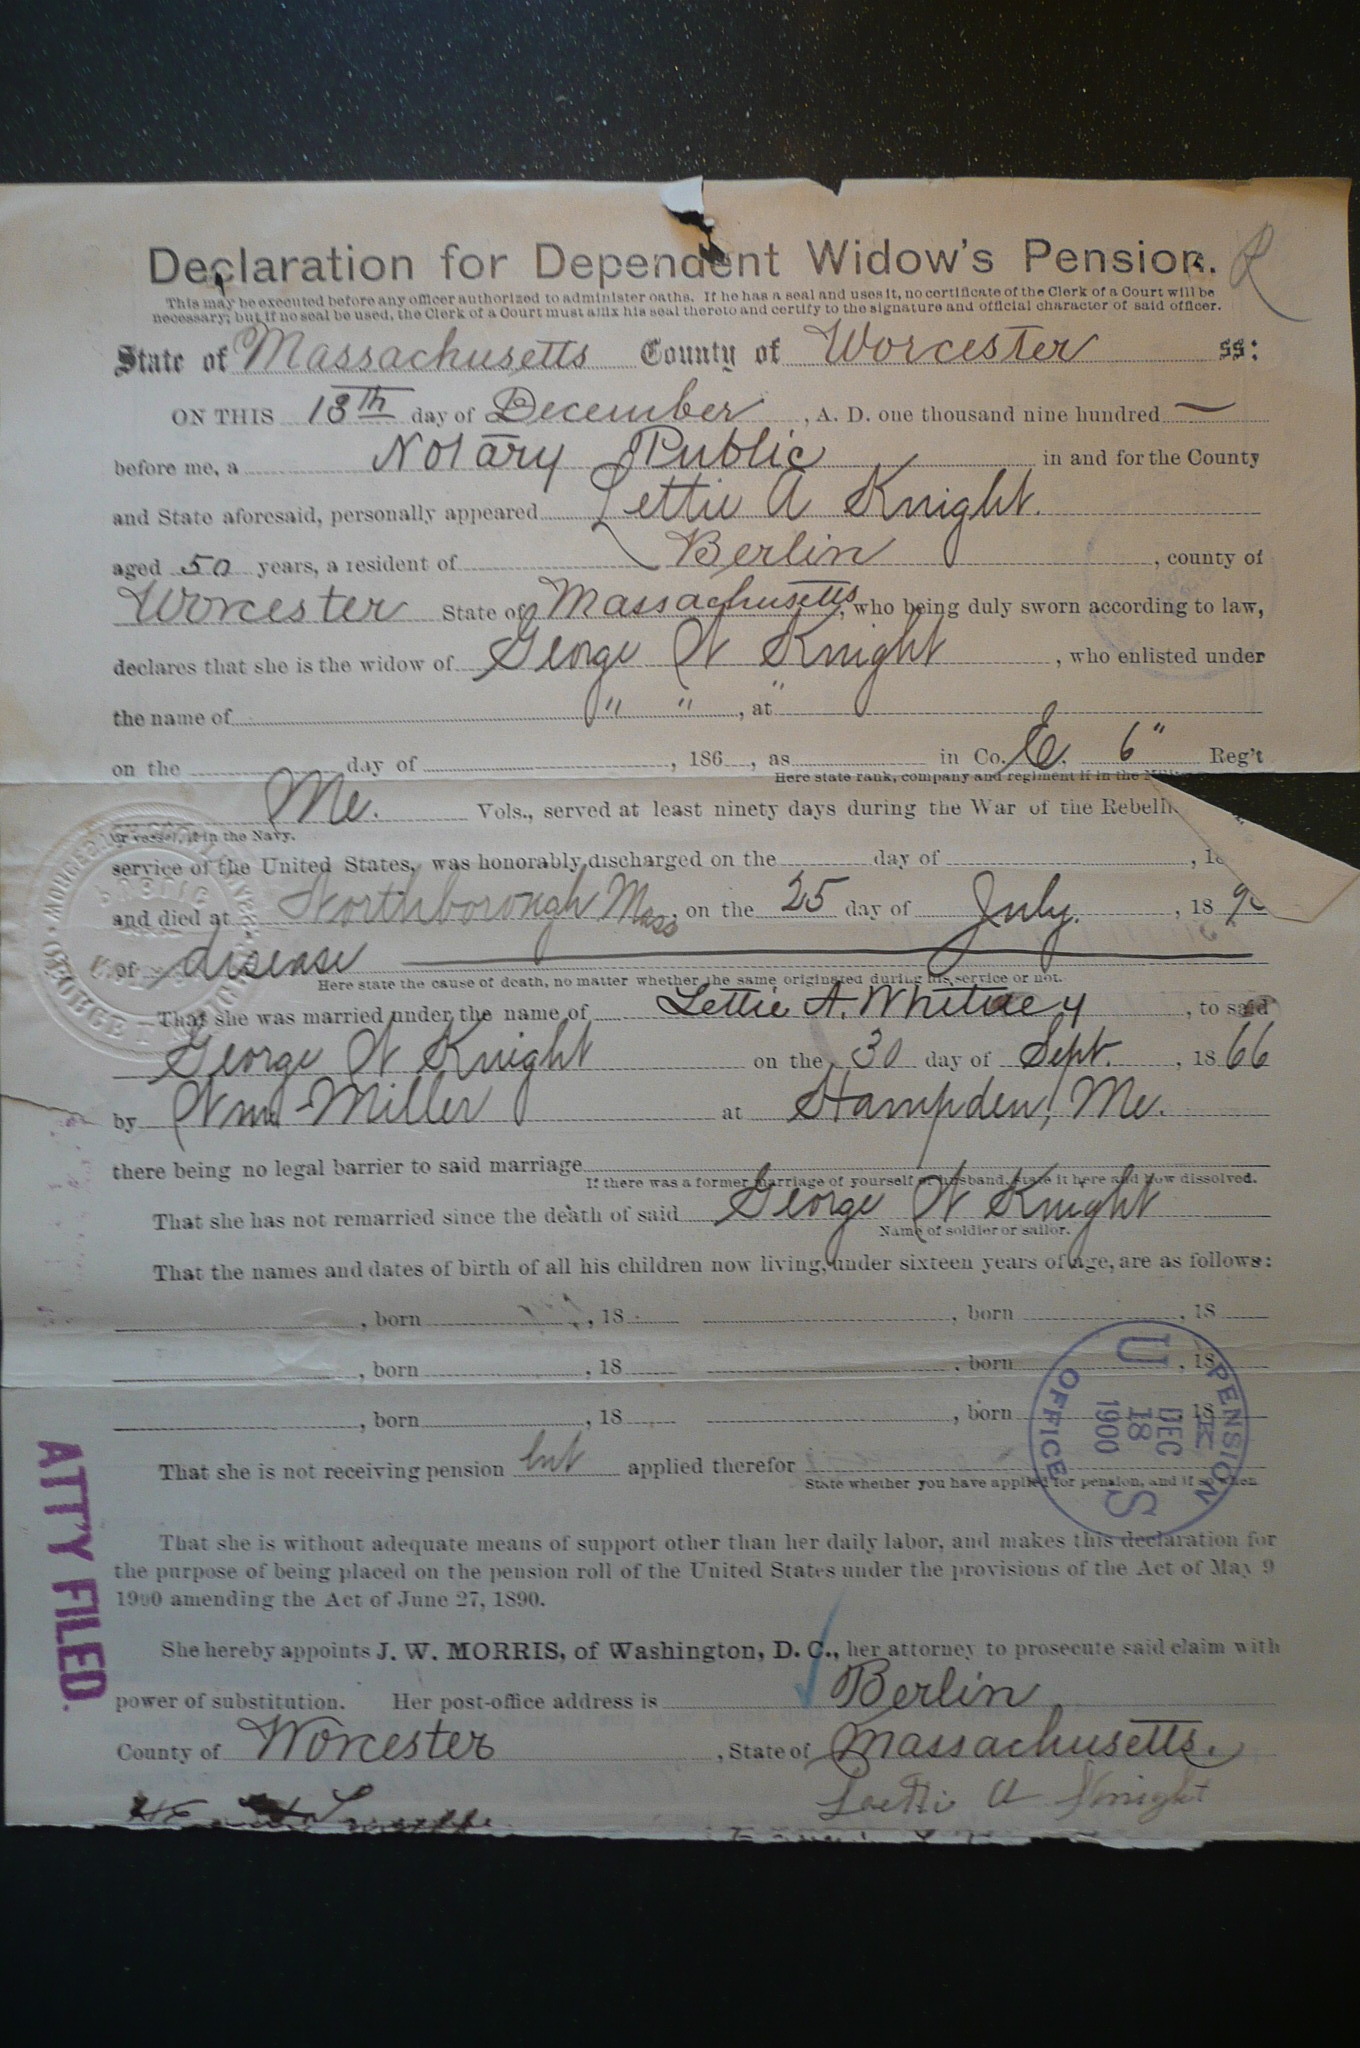 Declaration for Dependent Widow's Pension.
This may be executed before any officer authorized to administer oaths. If he has a seal and uses it, no certificate of the Clerk of a Court will be
necessary; but if no seal be used, the Clerk of a Court must affix his seal thereto and certify to the signature and official character of said officer.
State of Massachusetts County of Worcester ss:
ON THIS 13th day of December, A. D. one thousand nine hundred —
before me, a Notary Public in and for the County
and State aforesaid, personally appeared Lettie A Knight.
aged 50 years, a resident of Berlin, county of
Worcester State of Massachusetts, who being duly sworn according to law,
declares that she is the widow of George W Knight, who enlisted under
the name of " ", at "
on the day of , 186 , as in Co. E. 6" Reg't
Here state rank, company and regiment if in the
Me. Vols., served at least ninety days during the War of the
or vessel, if in the Navy.
service of the United States, was honorably discharged on the day of , 18
and died at Northborough Mass, on the 25 day of July., 18
of disease
Here state the cause of death, no matter whether the same originated during his service or not.
That she was married under the name of Lettie A. Whitney, to said
George W Knight on the 30 day of Sept., 1866
by Wm Miller at Hampden, Me.
there being no legal barrier to said marriage
If there was a former marriage of yourself or husband, state it here and how dissolved.
That she has not remarried since the death of said George W Knight
Name of soldier or sailor.
That the names and dates of birth of all his children now living, under sixteen years of age, are as follows:
, born , 18 , born , 18
, born , 18 , born , 18
, born , 18 , born , 18
That she is not receiving pension but applied therefor
State whether you have applied for pension, and if so when
U S PENSION OFFICE DEC 18 1900
That she is without adequate means of support other than her daily labor, and makes this declaration for
the purpose of being placed on the pension roll of the United States under the provisions of the Act of May 9
1900 amending the Act of June 27, 1890.
ATTY FILED.
She hereby appoints J. W. MORRIS, of Washington, D. C., her attorney to prosecute said claim with
power of substitution. Her post-office address is Berlin
County of Worcester, State of Massachusetts.
Lettie A Knight